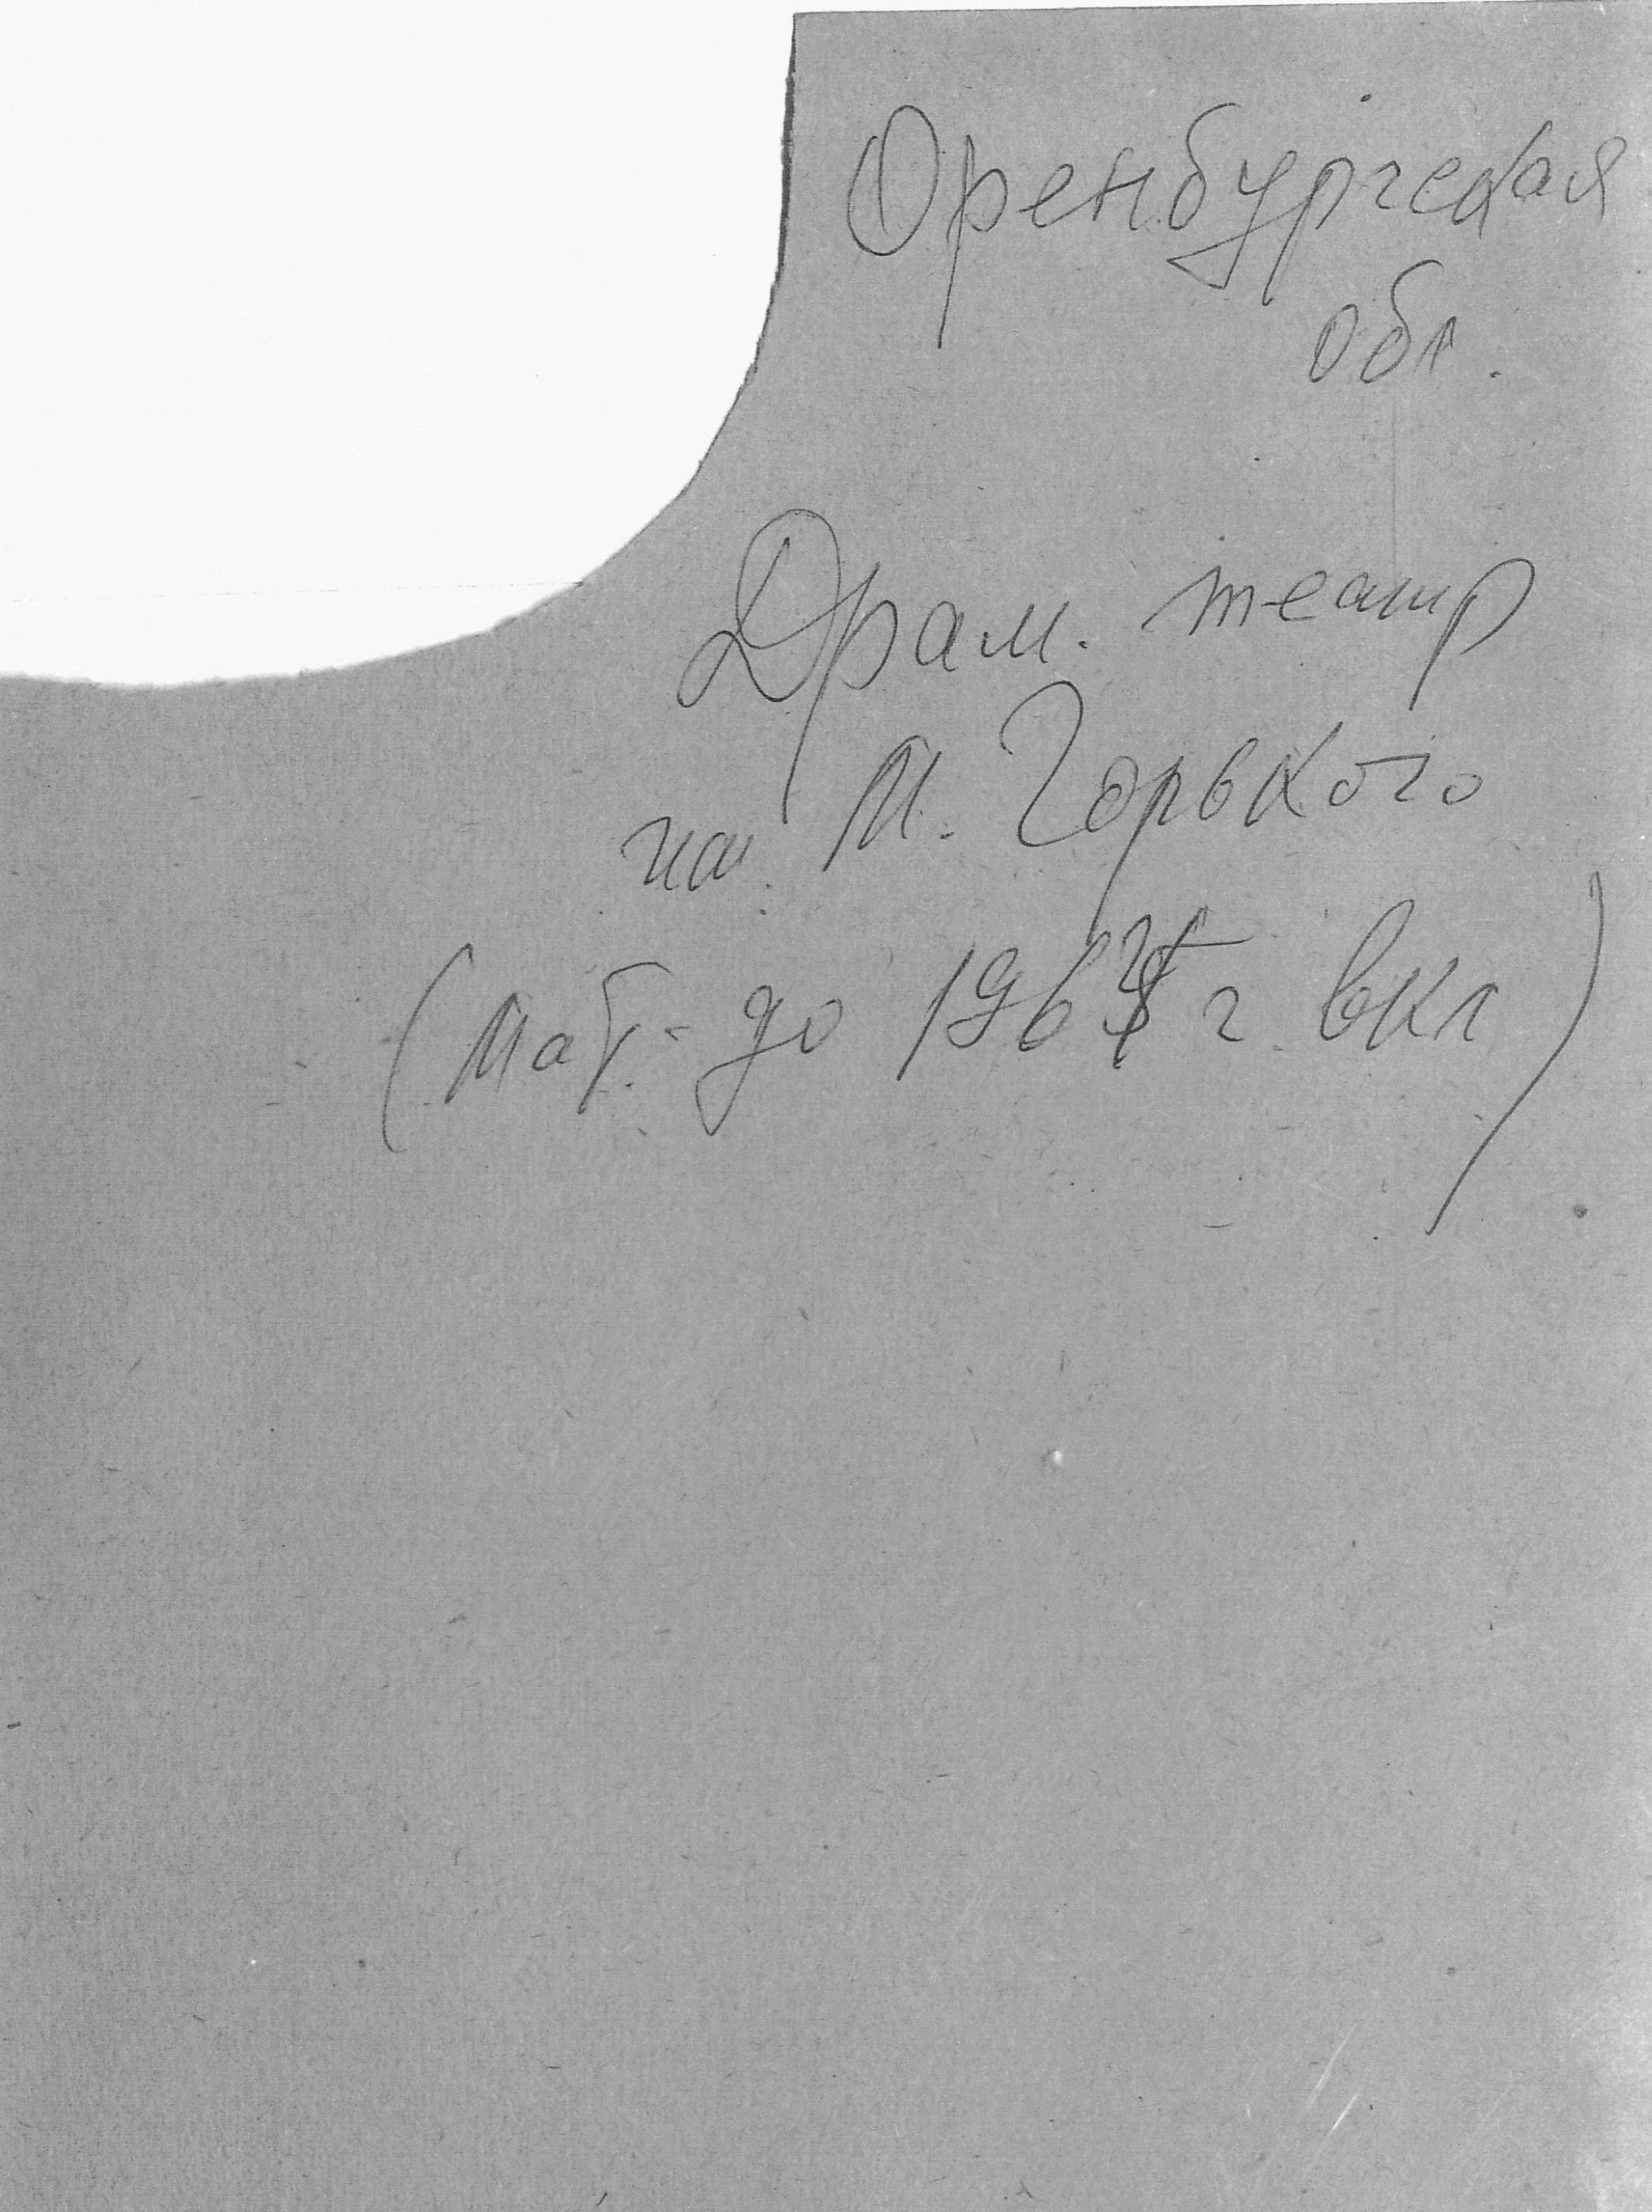 Оренбургская
обл.
Драм. театр
им. М. Горького
(Мат. до г. вкл)